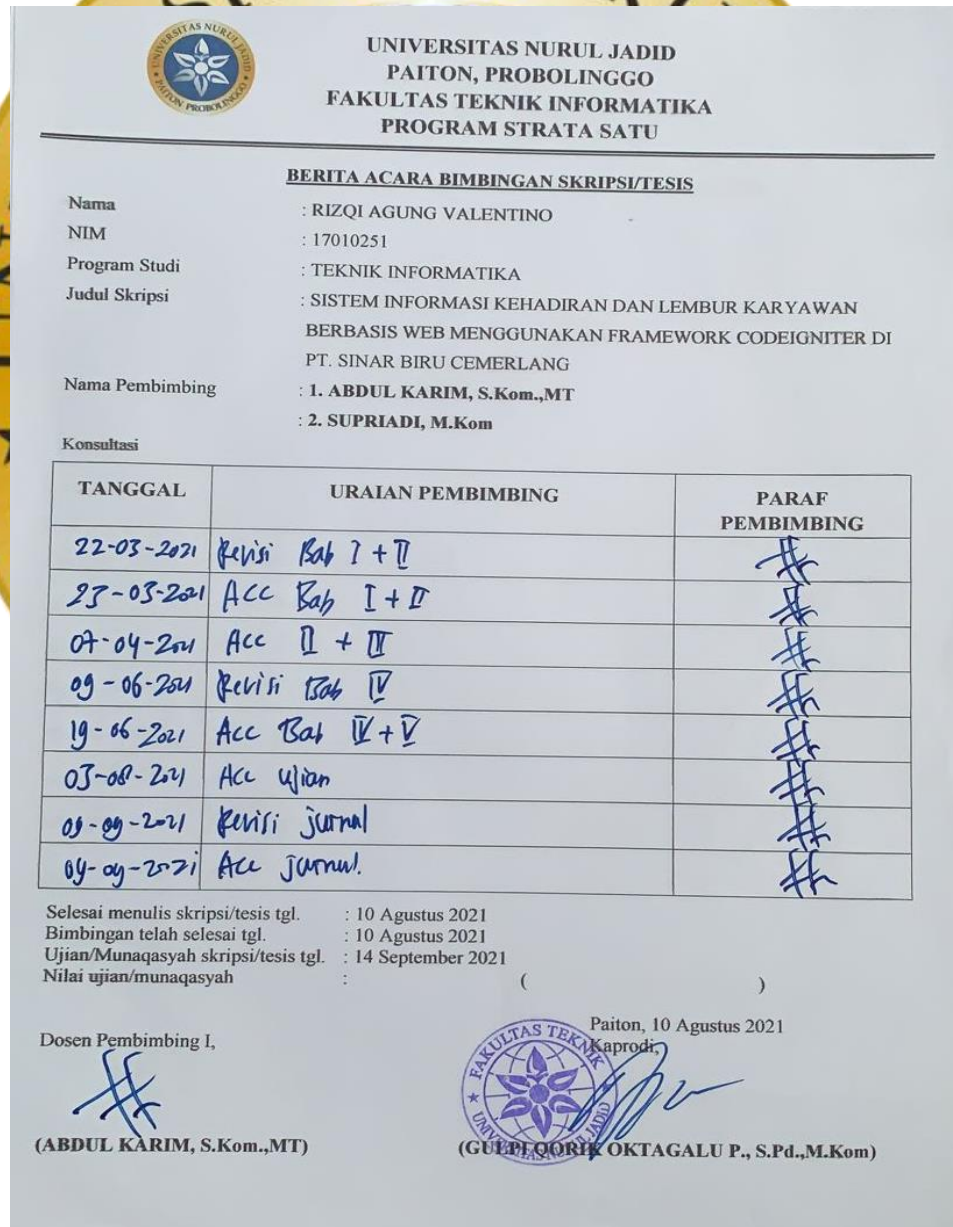 UNIVERSITAS NURUL JADID
PAITON PROBOLINGGO
UNIVERSITAS NURUL JADID
PAITON, PROBOLINGGO
FAKULTAS TEKNIK INFORMATIKA
PROGRAM STRATA SATU
BERITA ACARA BIMBINGAN SKRIPSI/TESIS
Nama : RIZQI AGUNG VALENTINO
NIM : 17010251
Program Studi : TEKNIK INFORMATIKA
Judul Skripsi : SISTEM INFORMASI KEHADIRAN DAN LEMBUR KARYAWAN
BERBASIS WEB MENGGUNAKAN FRAMEWORK CODEIGNITER DI
PT. SINAR BIRU CEMERLANG
Nama Pembimbing : 1. ABDUL KARIM, S.Kom.,MT
: 2. SUPRIADI, M.Kom
Konsultasi
TANGGAL URAIAN PEMBIMBING PARAF
PEMBIMBING
22-03-2021 Revisi Bab I + II
23-03-2021 ACC Bab I + II
07-04-2021 Acc II + III
09-06-2021 Revisi Bab IV
19-06-2021 Acc Bab IV + V
03-08-2021 Acc Ujian
Revisi jurnal
Acc Jurnal.
Selesai menulis skripsi/tesis tgl. : 10 Agustus 2021
Bimbingan telah selesai tgl. : 10 Agustus 2021
Ujian/Munaqasyah skripsi/tesis tgl. : 14 September 2021
Nilai ujian/munaqasyah : ( )
Paiton, 10 Agustus 2021
Dosen Pembimbing I, Kaprodi,
FAKULTAS TEKNIK
UNIVERSITAS NURUL JADID
(ABDUL KARIM, S.Kom.,MT) (GULPI QORIK OKTAGALU P., S.Pd.,M.Kom)